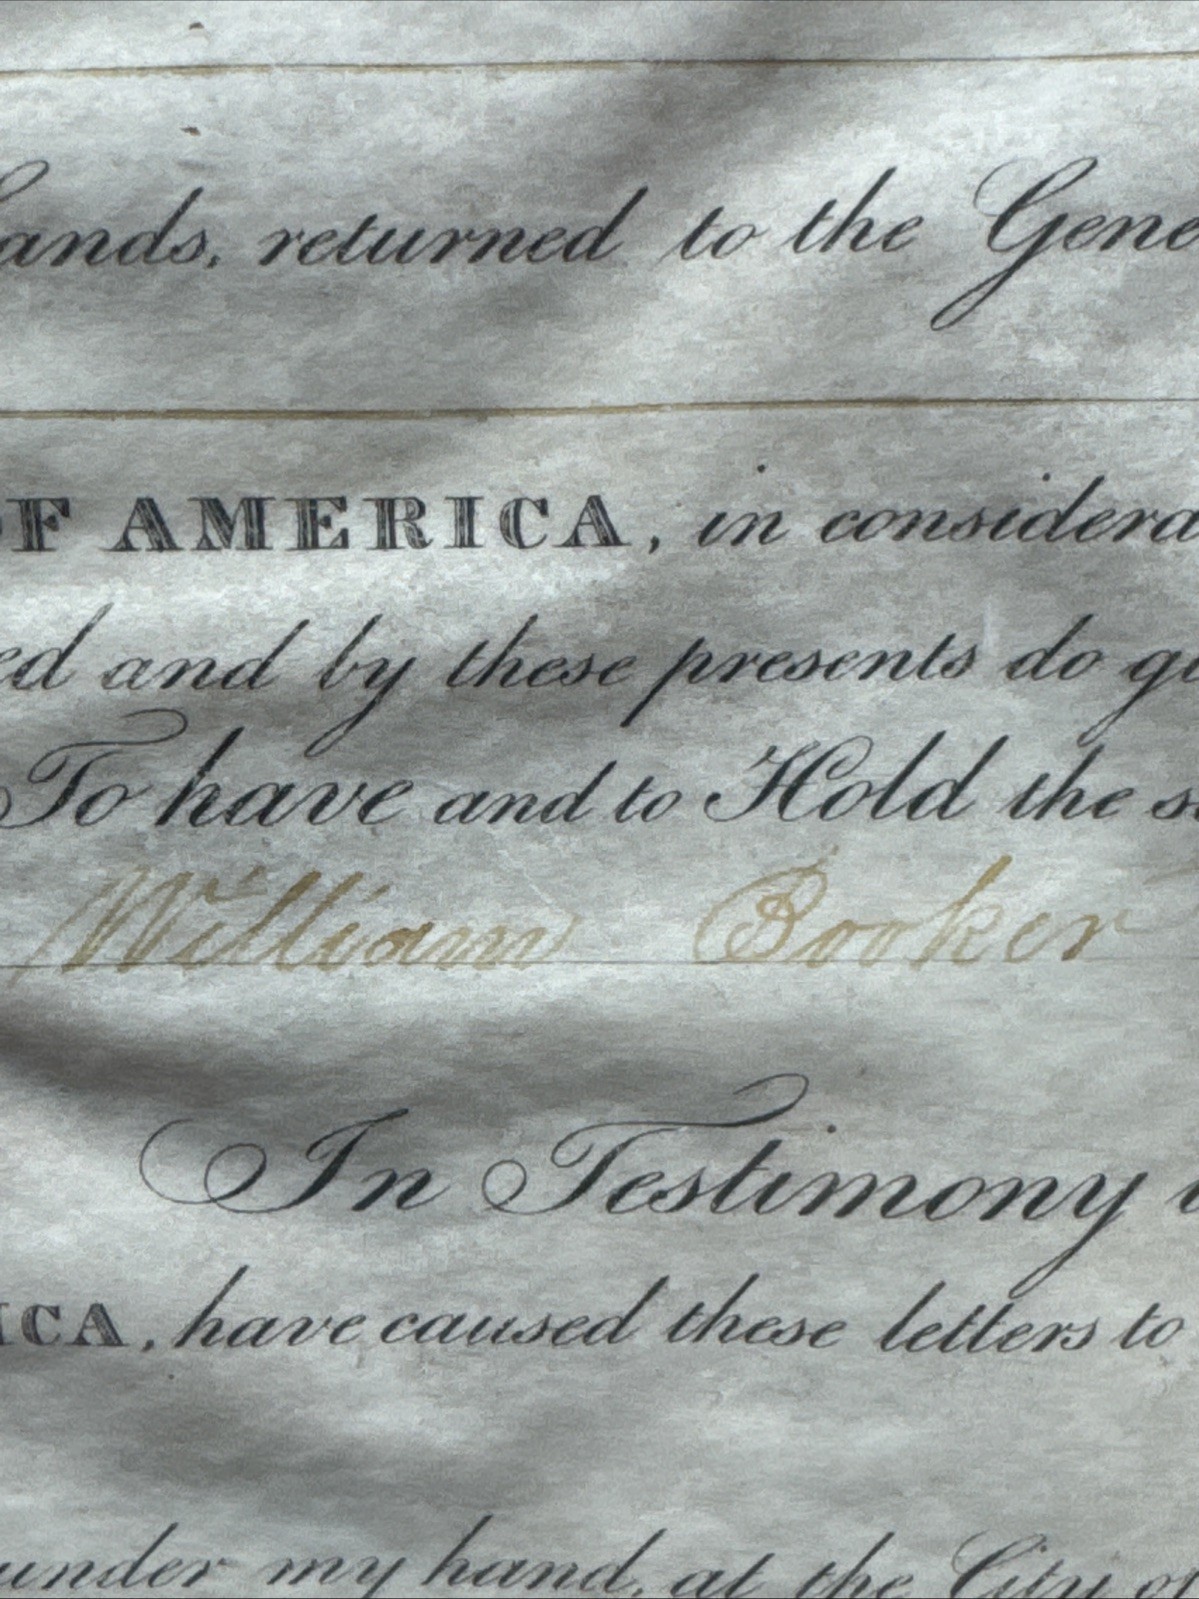 ands, returned to the Gene
OF AMERICA, in considera
ed and by these presents do gi
To have and to Hold the s
William Booker
In Testimony
ICA, have caused these letters to
under my hand, at the City of